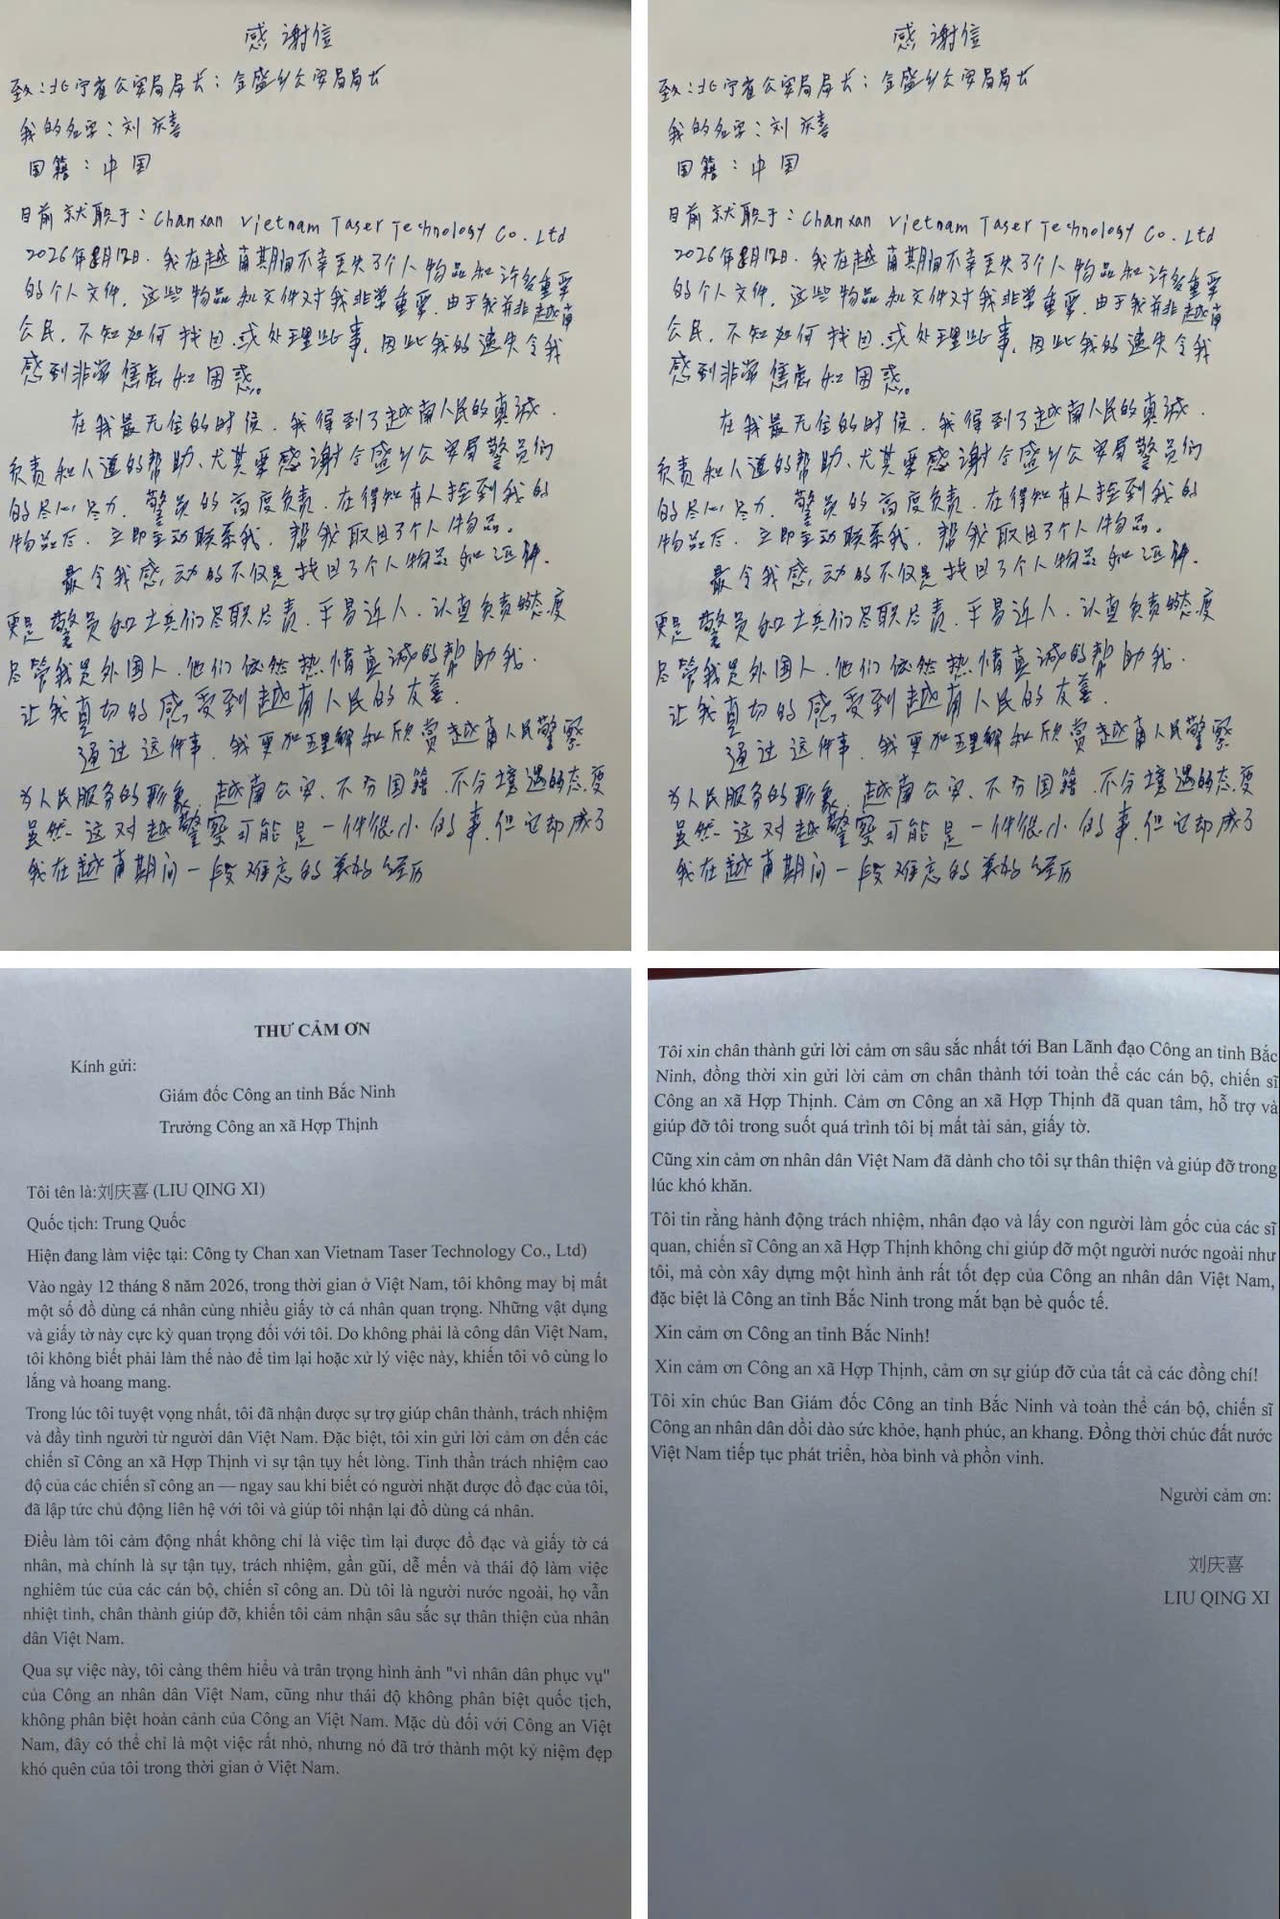 感谢信
致:北宁省公安局局长:合盛乡公安局局长
我的名字:刘庆喜
国籍:中国
目前就职于:Chanxan Vietnam Taser Technology Co. Ltd
2026年8月12日.我在越南期间不幸丢失了个人物品和许多重要
的个人文件.这些物品和文件对我非常重要.由于我并非越南
公民.不知如何找回.或处理此事.因此我的遗失令我
感到非常焦虑和困惑。
在我最无住的时候.我得到了越南人民的真诚.
负责和人道的帮助、尤其要感谢合盛乡公安局警员们
的尽心尽力.警员的高度负责.在得知有人捡到我的
物品后.立即主动联系我.帮我取回了个人物品。
最令我感动的不仅是找回了个人物品和证件.
更是警员和士兵们尽职尽责.平易近人.认真负责的态度
尽管我是外国人.他们依然热情真诚的帮助我.
让我真切的感受到越南人民的友善.
通过这件事.我更加理解和欣赏越南人民警察
为人民服务的形象.越南公安.不分国籍.不分境遇的态度
虽然这对越警察可能是一件很小的事.但它却成了
我在越南期间一段难忘的美好经历
感谢信
致:北宁省公安局局长:合盛乡公安局局长
我的名字:刘庆喜
国籍:中国
目前就职于:Chanxan Vietnam Taser Technology Co. Ltd
2026年8月12日.我在越南期间不幸丢失了个人物品和许多重要
的个人文件.这些物品和文件对我非常重要.由于我并非越南
公民.不知如何找回.或处理此事.因此我的遗失令我
感到非常焦虑和困惑。
在我最无住的时候.我得到了越南人民的真诚.
负责和人道的帮助、尤其要感谢合盛乡公安局警员们
的尽心尽力.警员的高度负责.在得知有人捡到我的
物品后.立即主动联系我.帮我取回了个人物品。
最令我感动的不仅是找回了个人物品和证件.
更是警员和士兵们尽职尽责.平易近人.认真负责的态度
尽管我是外国人.他们依然热情真诚的帮助我.
让我真切的感受到越南人民的友善.
通过这件事.我更加理解和欣赏越南人民警察
为人民服务的形象.越南公安.不分国籍.不分境遇的态度
虽然这对越警察可能是一件很小的事.但它却成了
我在越南期间一段难忘的美好经历
THƯ CẢM ƠN
Kính gửi:
Giám đốc Công an tỉnh Bắc Ninh
Trưởng Công an xã Hợp Thịnh
Tôi tên là:刘庆喜 (LIU QING XI)
Quốc tịch: Trung Quốc
Hiện đang làm việc tại: Công ty Chan xan Vietnam Taser Technology Co., Ltd)
Vào ngày 12 tháng 8 năm 2026, trong thời gian ở Việt Nam, tôi không may bị mất
một số đồ dùng cá nhân cùng nhiều giấy tờ cá nhân quan trọng. Những vật dụng
và giấy tờ này cực kỳ quan trọng đối với tôi. Do không phải là công dân Việt Nam,
tôi không biết phải làm thế nào để tìm lại hoặc xử lý việc này, khiến tôi vô cùng lo
lắng và hoang mang.
Trong lúc tôi tuyệt vọng nhất, tôi đã nhận được sự trợ giúp chân thành, trách nhiệm
và đầy tình người từ người dân Việt Nam. Đặc biệt, tôi xin gửi lời cảm ơn đến các
chiến sĩ Công an xã Hợp Thịnh vì sự tận tụy hết lòng. Tinh thần trách nhiệm cao
độ của các chiến sĩ công an — ngay sau khi biết có người nhặt được đồ đạc của tôi,
đã lập tức chủ động liên hệ với tôi và giúp tôi nhận lại đồ dùng cá nhân.
Điều làm tôi cảm động nhất không chỉ là việc tìm lại được đồ đạc và giấy tờ cá
nhân, mà chính là sự tận tụy, trách nhiệm, gần gũi, dễ mến và thái độ làm việc
nghiêm túc của các cán bộ, chiến sĩ công an. Dù tôi là người nước ngoài, họ vẫn
nhiệt tình, chân thành giúp đỡ, khiến tôi cảm nhận sâu sắc sự thân thiện của nhân
dân Việt Nam.
Qua sự việc này, tôi càng thêm hiểu và trân trọng hình ảnh "vì nhân dân phục vụ"
của Công an nhân dân Việt Nam, cũng như thái độ không phân biệt quốc tịch,
không phân biệt hoàn cảnh của Công an Việt Nam. Mặc dù đối với Công an Việt
Nam, đây có thể chỉ là một việc rất nhỏ, nhưng nó đã trở thành một kỷ niệm đẹp
khó quên của tôi trong thời gian ở Việt Nam.
Tôi xin chân thành gửi lời cảm ơn sâu sắc nhất tới Ban Lãnh đạo Công an tỉnh Bắc
Ninh, đồng thời xin gửi lời cảm ơn chân thành tới toàn thể các cán bộ, chiến sĩ
Công an xã Hợp Thịnh. Cảm ơn Công an xã Hợp Thịnh đã quan tâm, hỗ trợ và
giúp đỡ tôi trong suốt quá trình tôi bị mất tài sản, giấy tờ.
Cũng xin cảm ơn nhân dân Việt Nam đã dành cho tôi sự thân thiện và giúp đỡ trong
lúc khó khăn.
Tôi tin rằng hành động trách nhiệm, nhân đạo và lấy con người làm gốc của các sĩ
quan, chiến sĩ Công an xã Hợp Thịnh không chỉ giúp đỡ một người nước ngoài như
tôi, mà còn xây dựng một hình ảnh rất tốt đẹp của Công an nhân dân Việt Nam,
đặc biệt là Công an tỉnh Bắc Ninh trong mắt bạn bè quốc tế.
Xin cảm ơn Công an tỉnh Bắc Ninh!
Xin cảm ơn Công an xã Hợp Thịnh, cảm ơn sự giúp đỡ của tất cả các đồng chí!
Tôi xin chúc Ban Giám đốc Công an tỉnh Bắc Ninh và toàn thể cán bộ, chiến sĩ
Công an nhân dân dồi dào sức khỏe, hạnh phúc, an khang. Đồng thời chúc đất nước
Việt Nam tiếp tục phát triển, hòa bình và phồn vinh.
Người cảm ơn:
刘庆喜
LIU QING XI